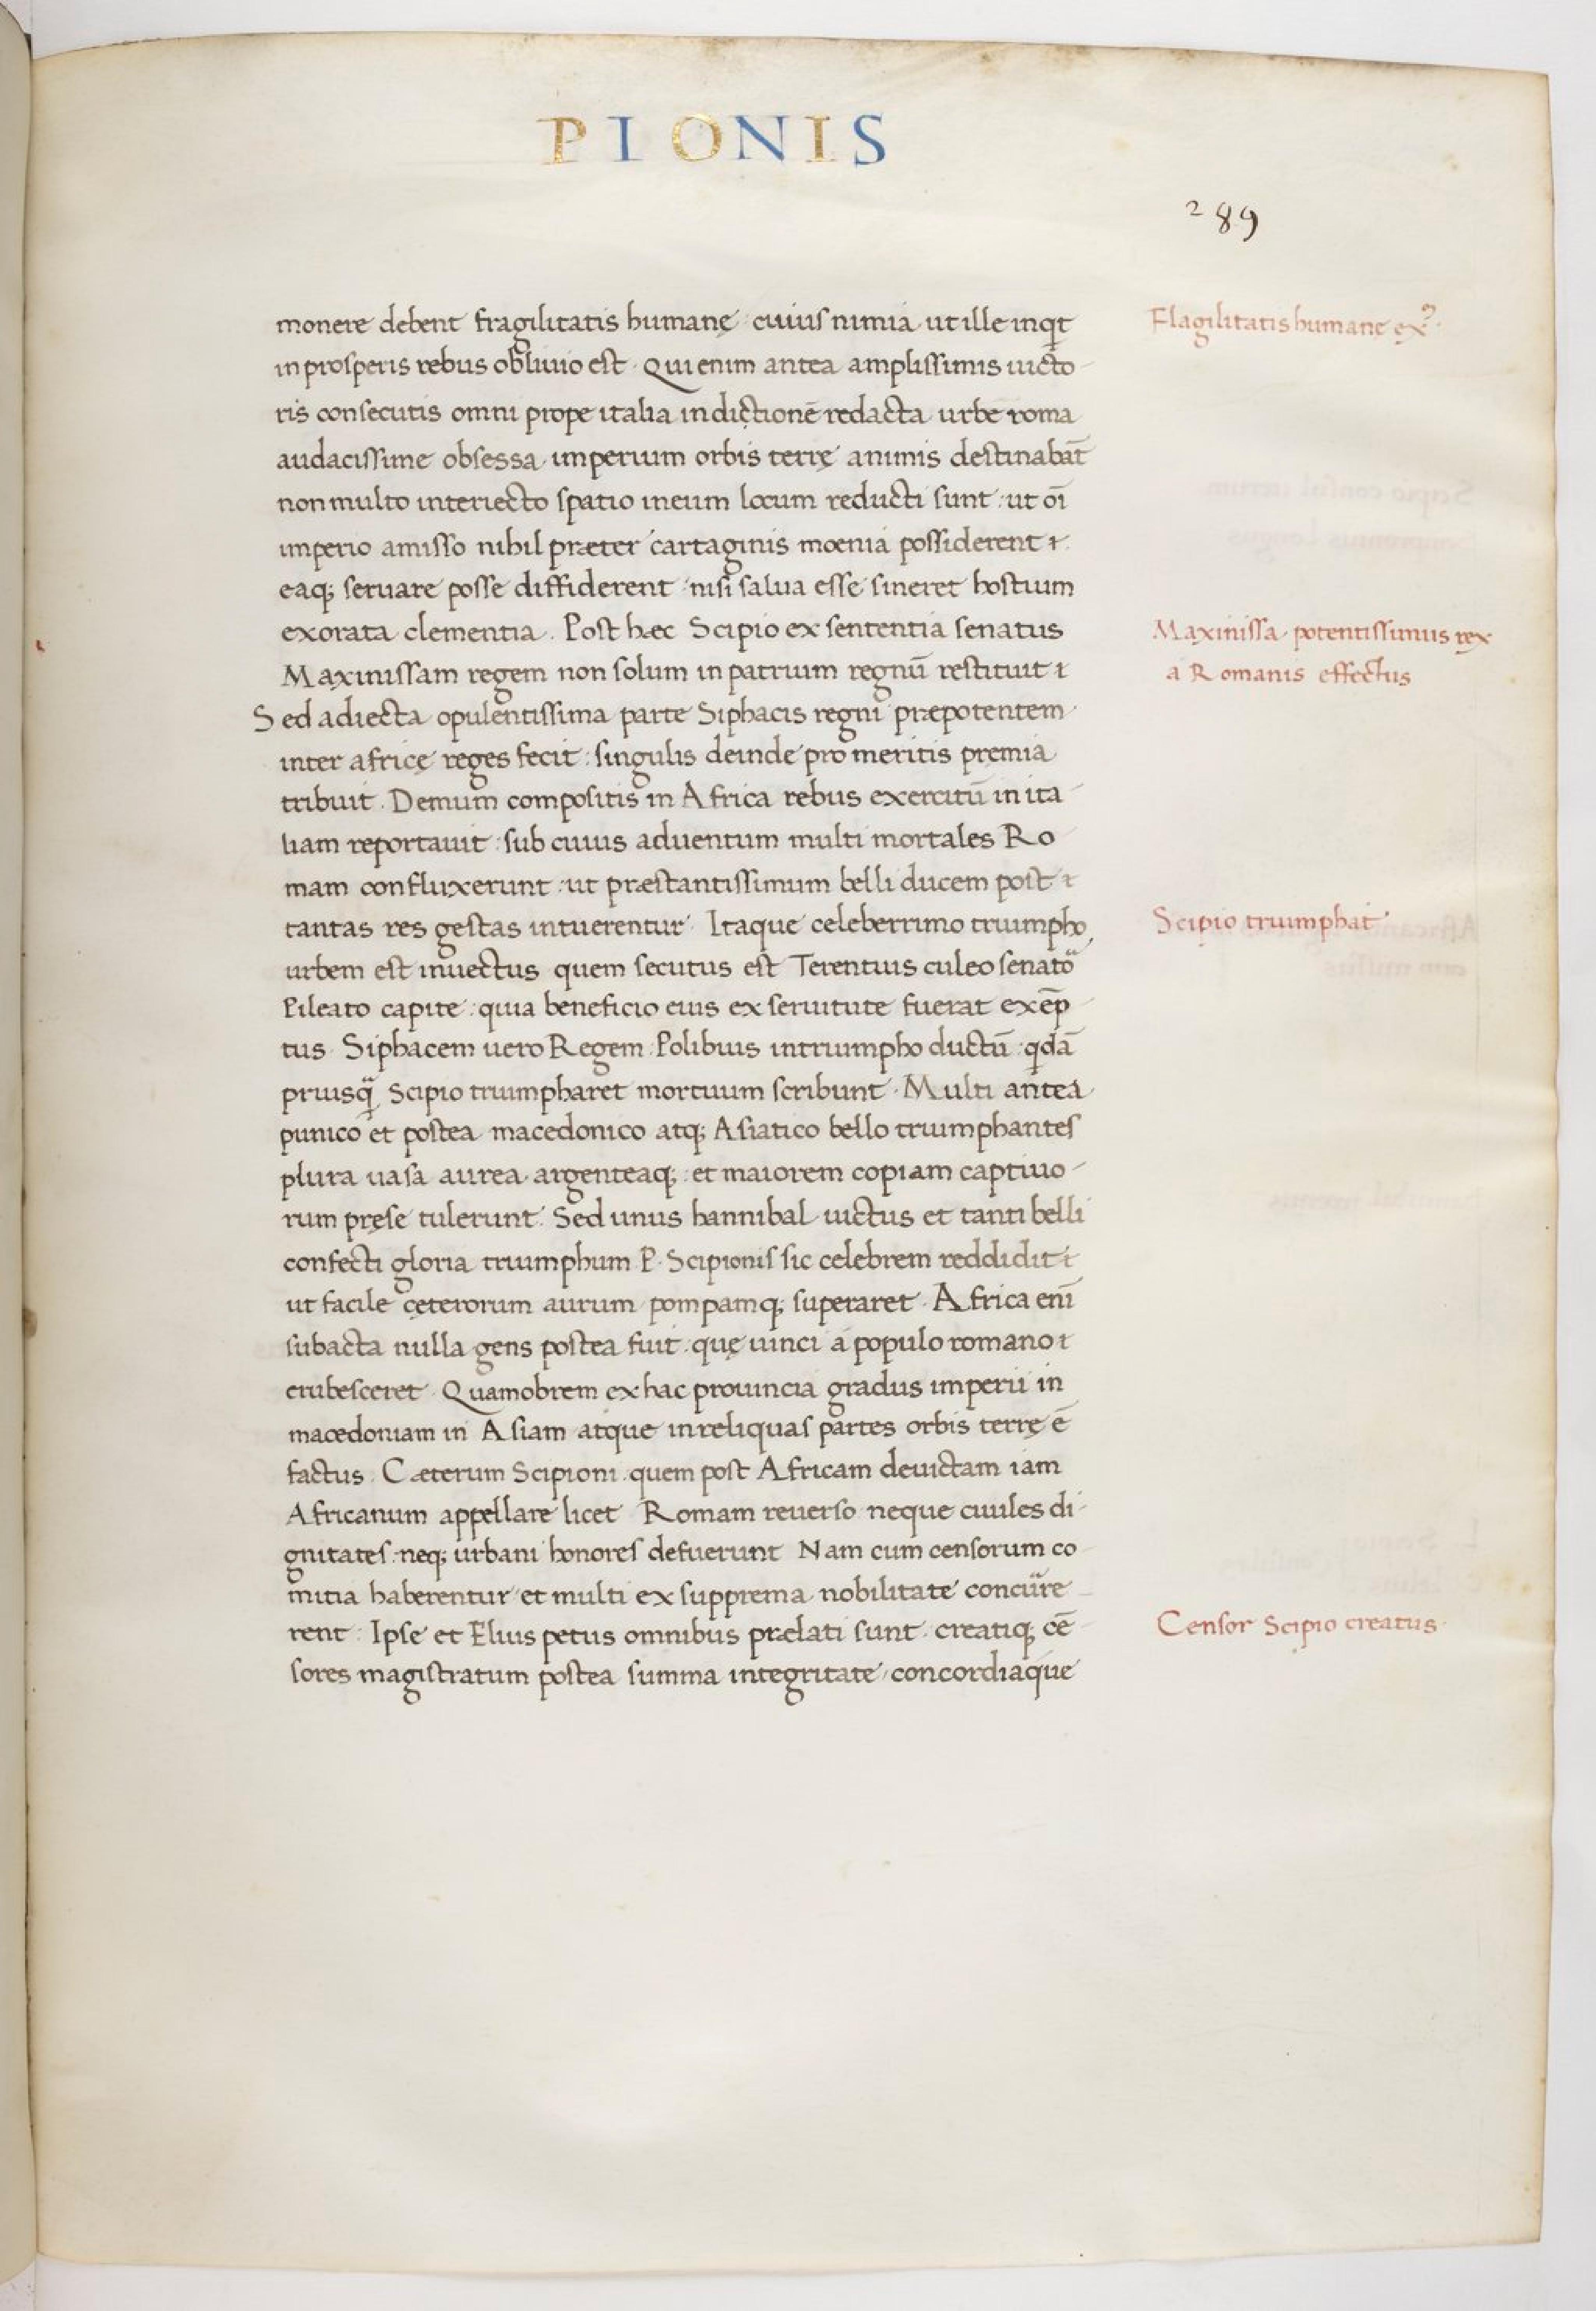 PIONIS
289
monere debent fragilitatis humanę cuius nimia ut ille inqt
in prosperis rebus obliuio est. Qui enim antea amplissimis uicto-
ris consecutis omni prope italia indictionē redacta urbe roma
audacissime obsessa imperium orbis terrę animis destinabāt
non multo interiecto spatio ineum locum reducti sunt: ut oī
imperio amisso nihil præter cartaginis moenia possiderent
eaq; seruare posse diffiderent nisi salua esse sineret hostium
exorata clementia. Post hæc Scipio ex sententia senatus
Maxinissam regem non solum in patruim regnū restituit
Sed adiecta opulentissima parte Siphacis regni præpotentem
inter africę reges fecit: singulis deinde pro meritis pręmia
tribuit. Demum compositis in Africa rebus exercitū in ita-
liam reportauit: sub cuius aduentum multi mortales Ro
mam confluxerunt: ut præstantissimum belli ducem post
tantas res gestas intuerentur. Itaque celeberrimo triumpho
urbem est inuectus quem secutus est Terentius culeo senatoͬ
Pileato capite: quia beneficio eius ex seruitute fuerat exēp
tus. Siphacem uero Regem Polibius intriumpho ductū: qdā
priusq̄ Scipio triumpharet mortuum scribunt. Multi antea
punico et postea macedonico atq; Asiatico bello triumphantes
plura uasa aurea argenteaq; et maiorem copiam captiuo-
rum pręse tulerunt. Sed unus hannibal uictus et tanti belli
confecti gloria triumphum P. Scipionis sic celebrem reddidit
ut facile cęterorum aurum pompamq; superaret. Africa enī
subacta nulla gens postea fuit quę uinci a populo romano
erubesceret. Quamobrem ex hac prouincia gradus imperii in
macedoniam in Asiam atque in reliquas partes orbis terrę ē
factus. Cæterum Scipioni quem post Africam deuictam iam
Africanum appellare licet Romam reuerso neque ciuiles di-
gnitates neq; urbani honores defuerunt Nam cum censorum co
mitia haberentur et multi ex supprema nobilitate concūre
rent: Ipse et Elius petus omnibus prælati sunt creatiq; cē
sores magistratum postea summa integritate concordiaque
Flagilitatis humanę ex.
Maxinissa potentissimus rex
a Romanis effectus
Scipio triumphat
Censor Scipio creatus